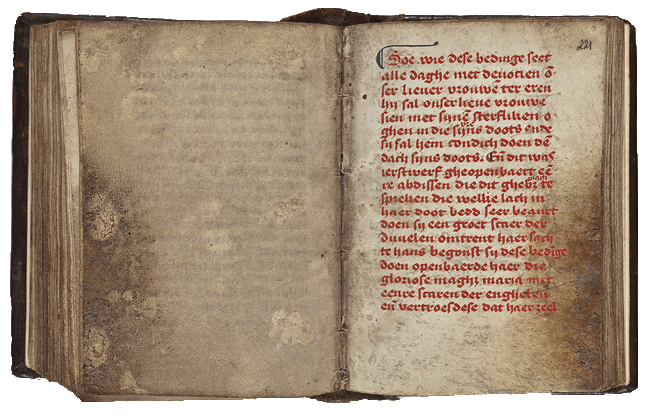 221
Soe wie dese bedinge leet
alle daghe met deuotien ō
ser lieuer vrouwē ter eren
hij sal onser lieue vrouwe
sien met sijnē sterflikē o
ghen in die vre sijns doots ende
sij sal hem condich doen dē
dach sijns doots. Eñ dit was
ierstwerf gheopenbaert ee
re abdissen die dit ghebet plach te
spreken die welke lach in
haer doot bedd seer beanxt
doen sij een groet scaer der
duuelen omtrent haer sach
te hans begonst sij dese bedīge
doen openbaerde haer die
gloriose maghz maria met
eenre scaren der enghelen
eñ vertroestese dat haer zeel